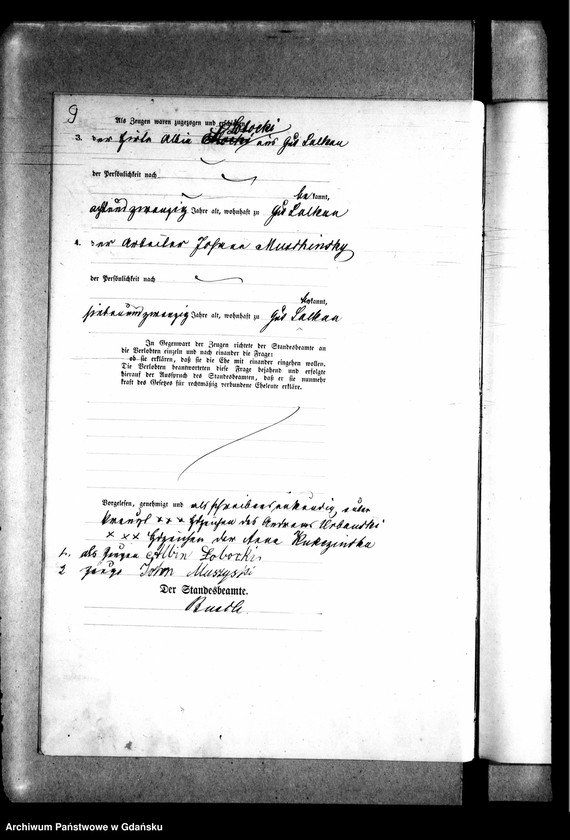 9
Als Zeugen waren zugezogen und erschienen:
Lobocki
3. der Hirte Albin aus Gut Lalkau
der Persönlichkeit nach
be kannt,
achtundzwanzig Jahre alt, wohnhaft zu Gut Lalkau
4. der Arbeiter Johann Muschinsky
der Persönlichkeit nach
be kannt,
siebenundzwanzig Jahre alt, wohnhaft zu Gut Lalkau
In Gegenwart der Zeugen richtete der Standesbeamte an
die Verlobten einzeln und nach einander die Frage:
ob sie erklären, daß sie die Ehe mit einander eingehen wollen.
Die Verlobten beantworteten diese Frage bejahend und erfolgte
hierauf der Ausspruch des Standesbeamten, daß er sie nunmehr
kraft des Gesetzes für rechtmäßig verbundene Eheleute erkläre.
Vorgelesen, genehmigt und als schreibensunkundig unter
kreuzt × × × Handzeichen des Andreas Urbanski
× × × Handzeichen der Anna
1. als Zeugen Albin Lobocki
2 Zeuge Johan Muszyski
Der Standesbeamte.
Archiwum Państwowe w Gdańsku